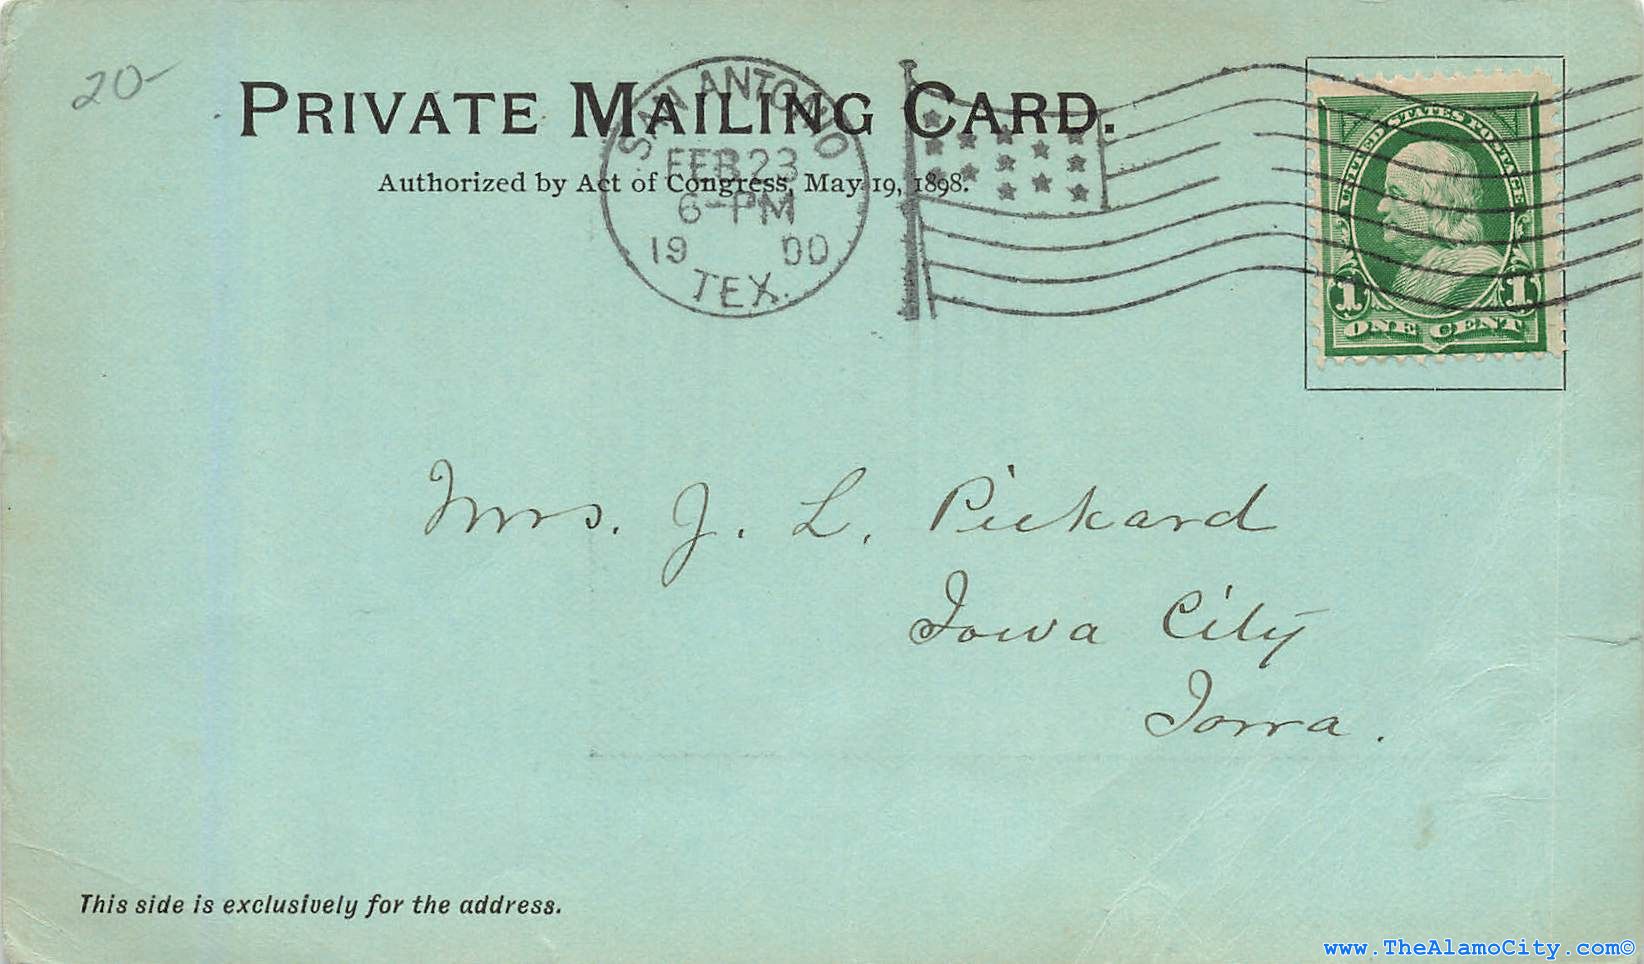 20-
PRIVATE MAILING CARD.
Authorized by Act of Congress, May 19, 1898.
SAN ANTONIO
FEB 23
6-PM
19 00
TEX.
UNITED STATES POSTAGE
1 1
ONE CENT
Mrs. J. L. Pickard
Iowa City
Iowa.
This side is exclusively for the address.
www.TheAlamoCity.com©